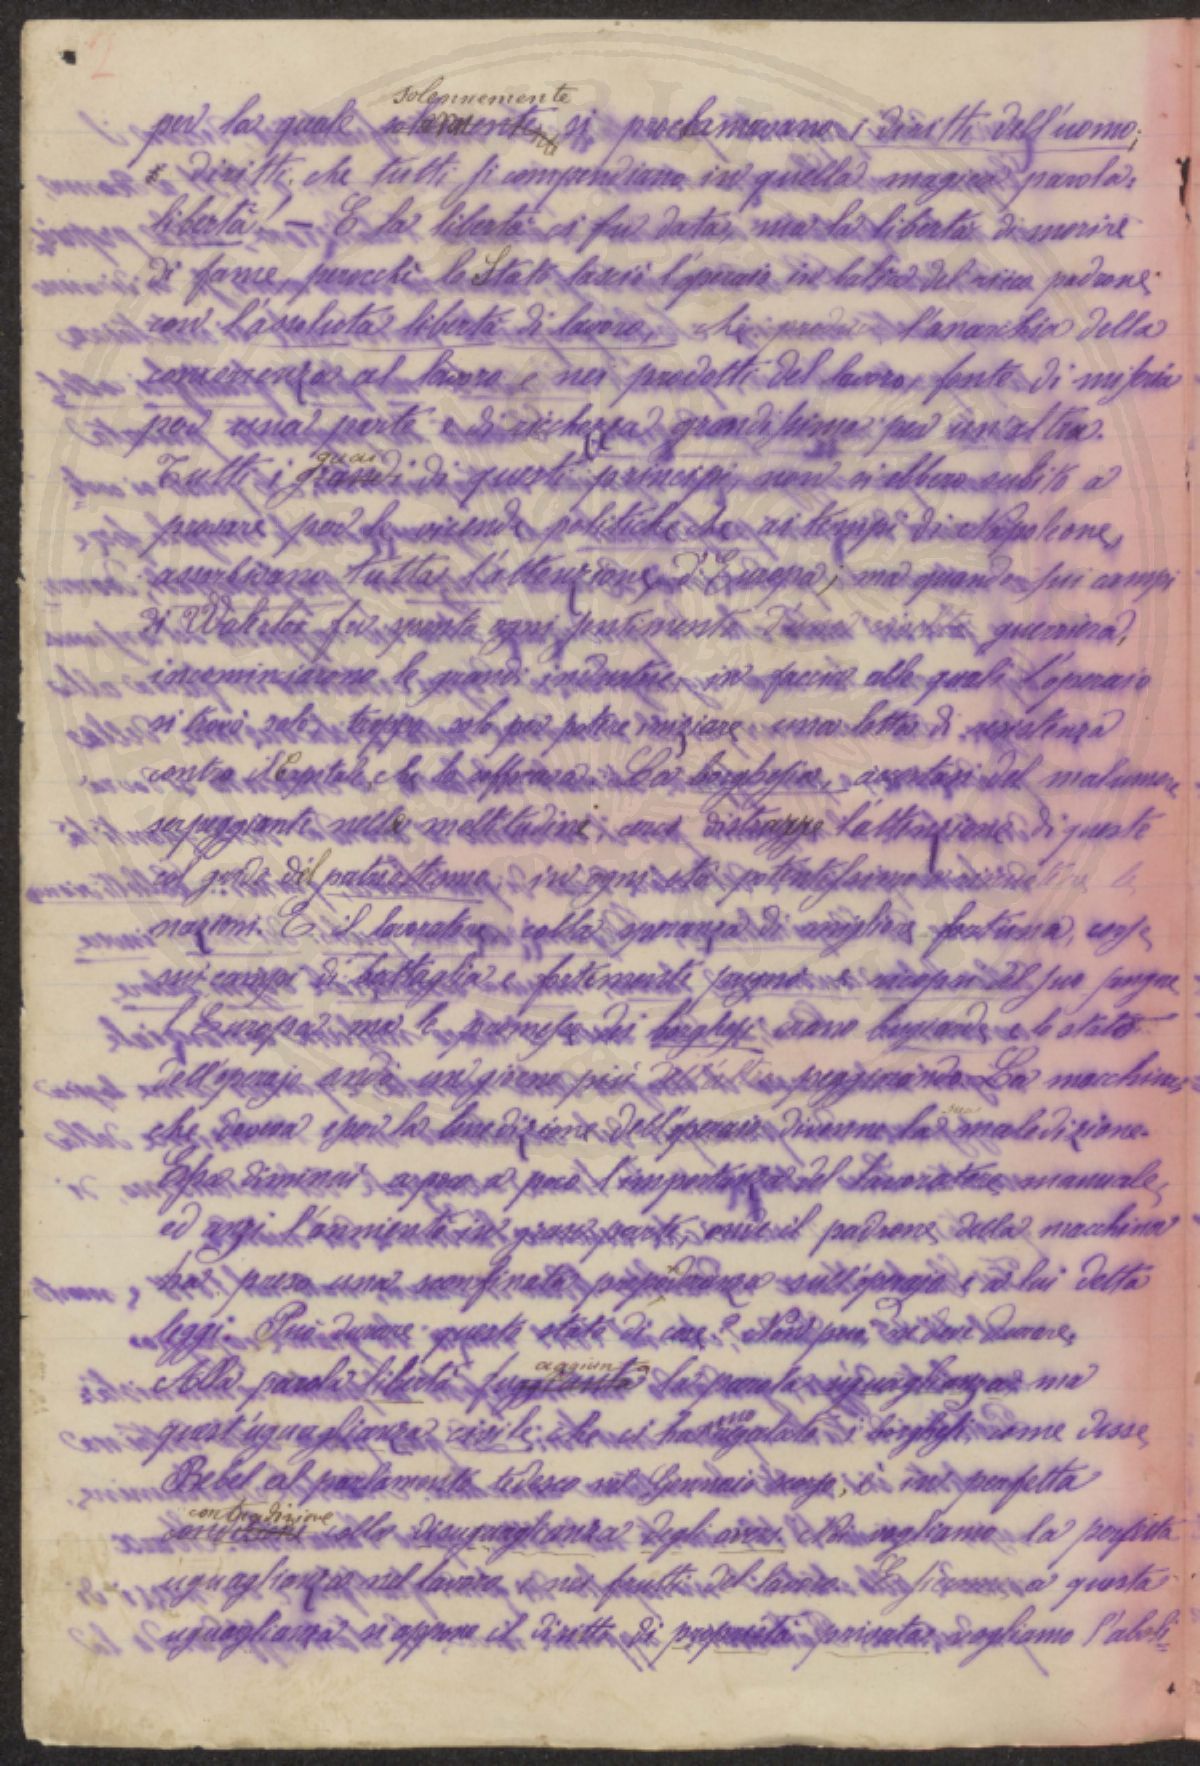 solennemente
per la quale si proclamavano i diritti dell'uomo;
diritti, che tutti si compendiano in quella magica parola:
libertà! — E la libertà ci fu data, ma la libertà di morire
di fame, perocchè lo Stato lasciò l'operaio in balìa del ricco padrone
con l'assoluta libertà di lavoro, che l'anarchia della
concorrenza al lavoro e nei prodotti del lavoro, fonte di miseria
per una parte e di ricchezza grandissima per un'altra.
guai
Tutti i di questi principii non si ebbero subito a
provare per le vicende politiche che ai tempi di Napoleone,
assorbivano tutta l'attenzione d'Europa; ma quando sui campi
di Waterloo fu spento ogni sentimento d'una guerriera,
incominciarono le grandi industrie, in faccia alle quali l'operaio
si trovò solo, troppo solo per potere iniziare una lotta di resistenza
contro il Capitale che lo opprimeva. La borghesia, accortasi del malumore
serpeggiante nelle moltitudini, cercò distrarre l'attenzione di queste
col grido del patriottismo, in ogni età potentissimo le
nazioni. E il lavoratore, colla speranza di migliore fortuna, corse
sui campi di battaglia e fortemente pugnò e del suo sangue
l'Europa ma le promesse dei borghesi erano bugiarde e lo stato
dell'operajo andò un giorno più dell'altro peggiorando. La macchina,
che doveva esser la benedizione dell'operaio divenne la sua maledizione.
Essa diminuì a poco a poco l'importanza del lavoratore manuale,
ed anzi l'annientò in gran parte, onde il padrone della macchina
ha preso una sconfinata preponderanza sull'operajo e a lui detta
leggi. Può durare questo stato di cose? Non può, nè deve durare.
aggiunta
Alla parola libertà fu la parola uguaglianza, ma
quest'uguaglianza civile, che ci hanno regalato i borghesi, come disse
Bebel al parlamento tedesco nel Gennaio scorso, è in perfetta
contradizione
colla disuguaglianza degli averi. Noi vogliamo la perfetta
uguaglianza nel lavoro e nei frutti del lavoro. E siccome a questa
uguaglianza si oppone il diritto di proprietà privata, vogliamo l'aboli-